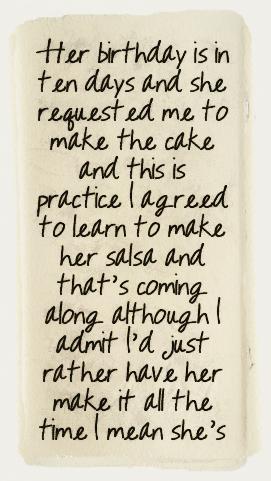 Her birthday is in
ten days and she
requested me to
make the cake
and this is
practice I agreed
to learn to make
her salsa and
that's coming
along although I
admit I'd just
rather have her
make it all the
time I mean she's